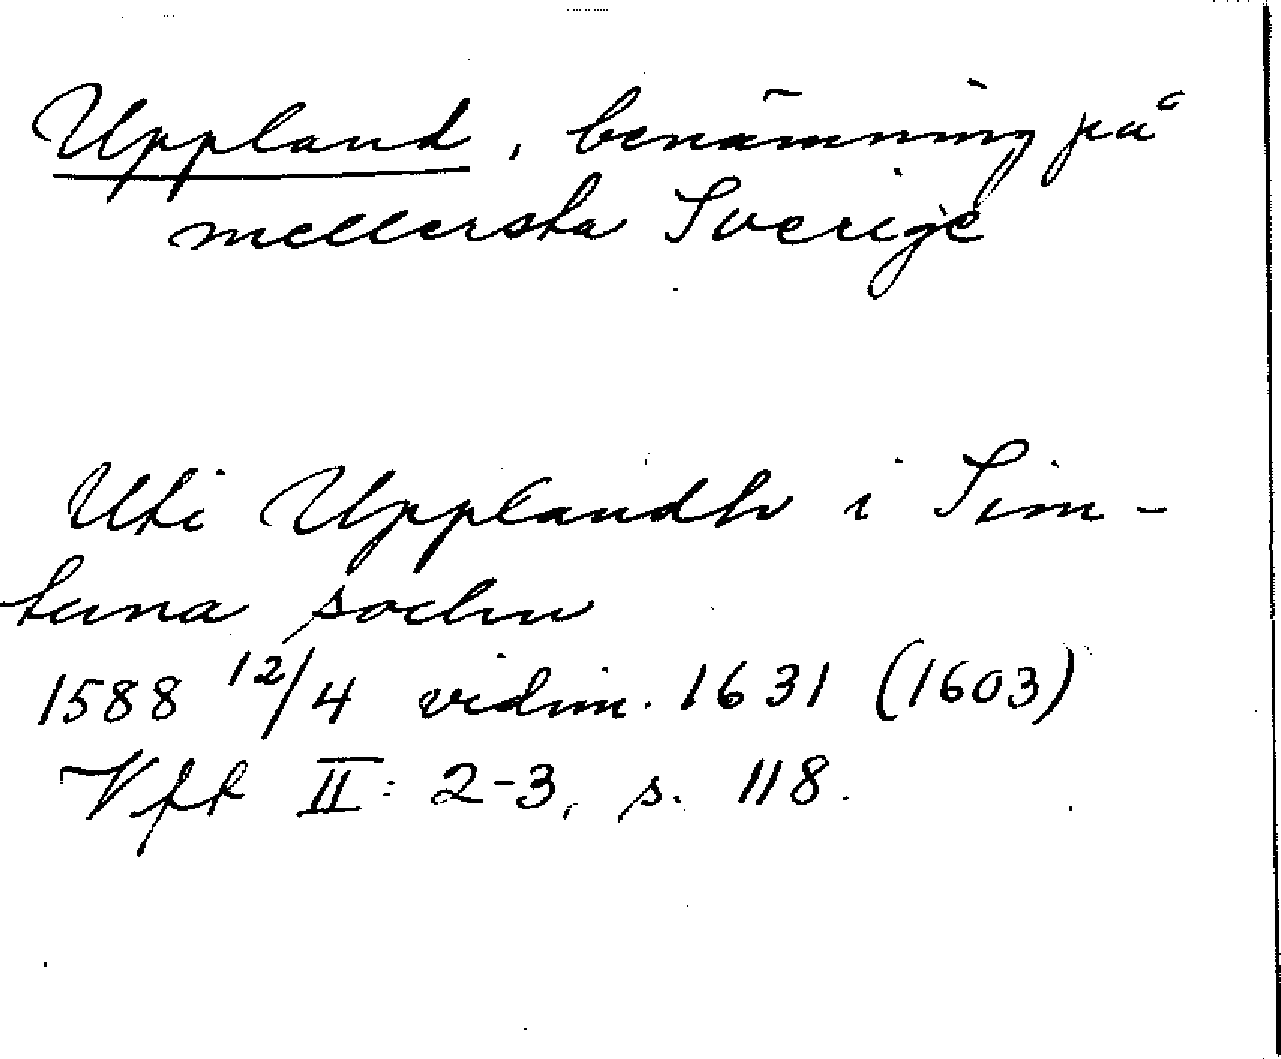 Uppland, benämning på
mellersta Sverige
Uti Upplandh i Sim-
tuna sochn
1588 12/4 vidim. 1631 (1603)
Vfr II: 2-3, s. 118.